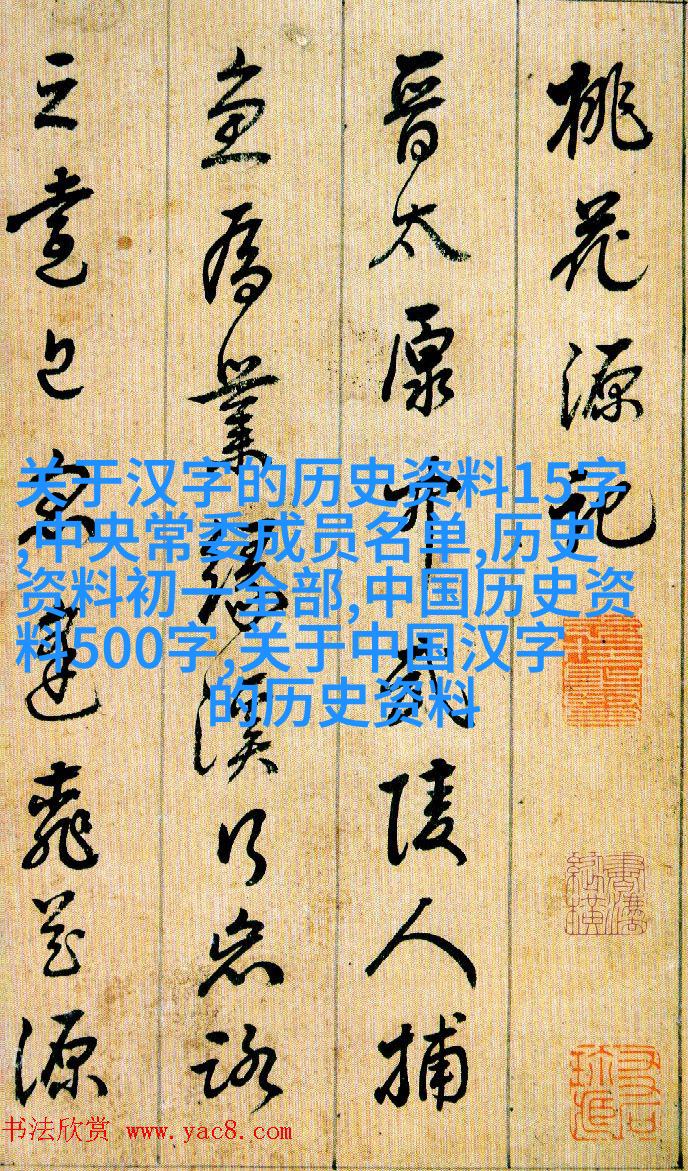 桃花源記
晉太原中武陵人捕
魚為業緣溪行忘路
之遠近忽逢桃花源
关于汉字的历史资料15字
,中央常委成员名单,历史
资料初一全部,中国历史资
料500字,关于中国汉字
的历史资料
书法欣赏 www.yac8.com